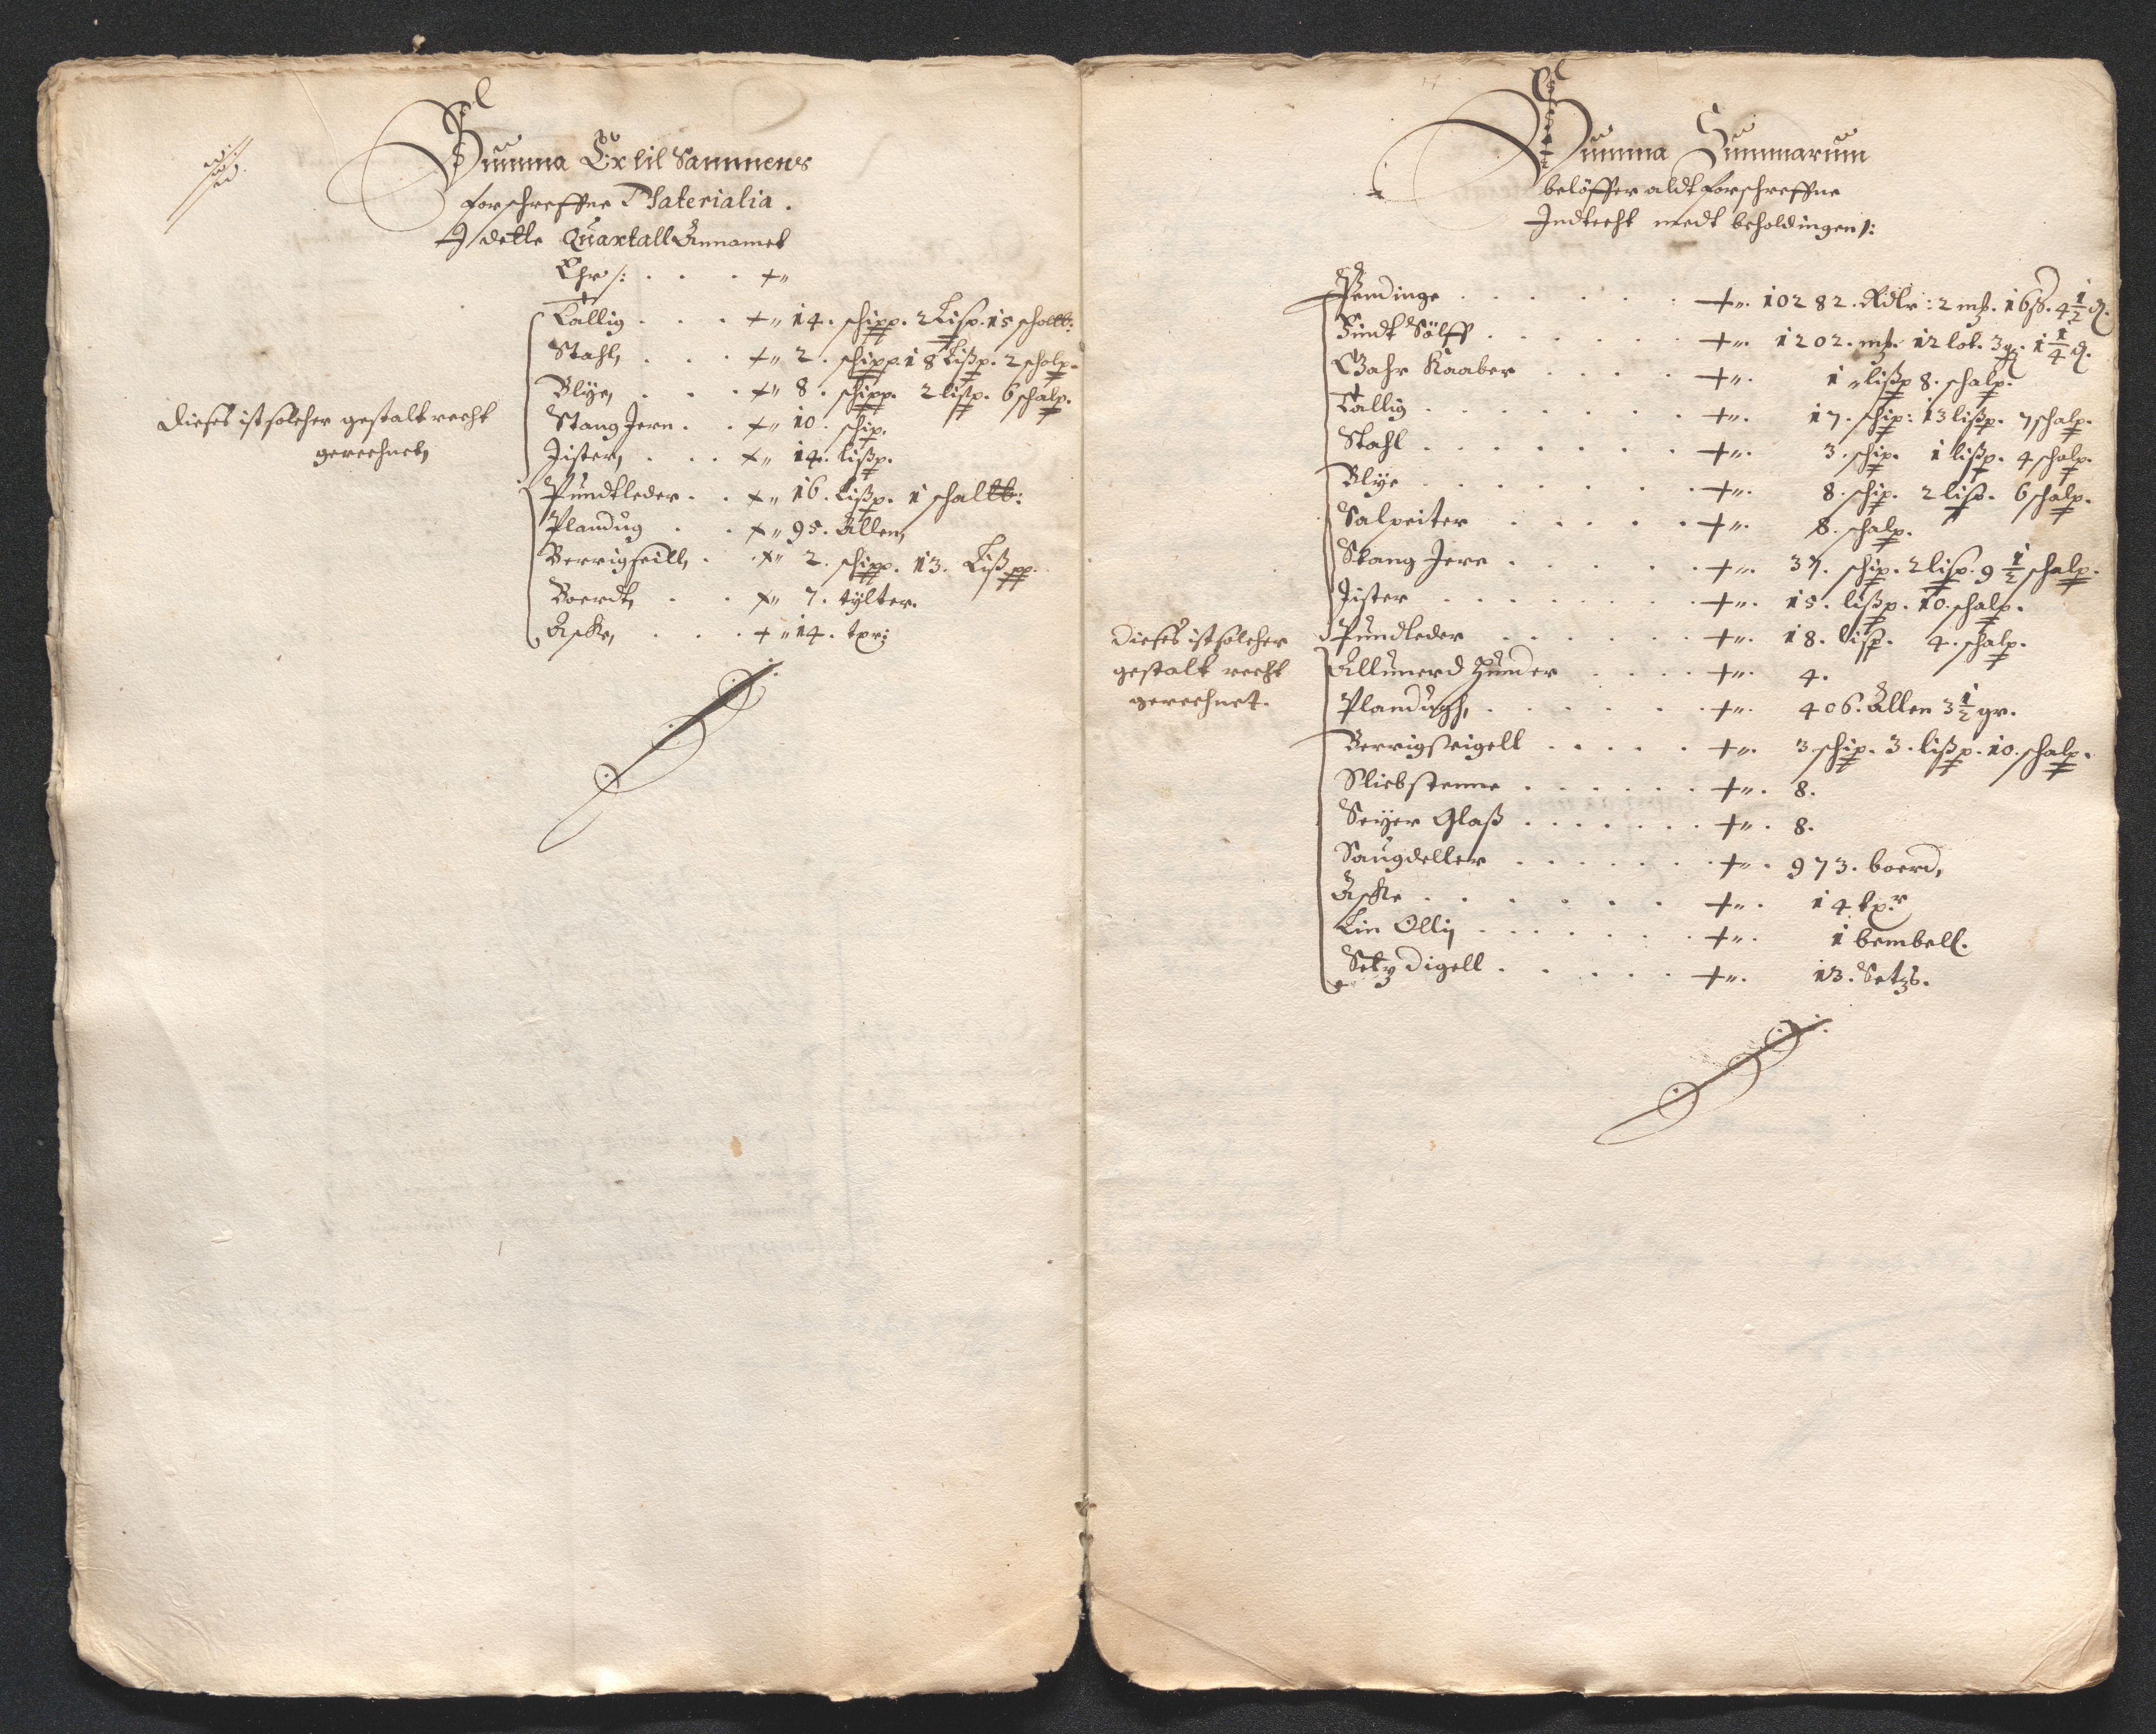 Summa Extil Sammens
forschreffne Materialia.
I dette Quartall Annamet
Ehr /: . . . +"
Tallig . . . +" 14. schipp. 2 Lisp. 15 schalb:
Stahl, . . . +" 2. schipp. 18 Lißp. 2 schalp.
Blye, . . . +" 8. schipp. 2 lisp. 6 schalp.
Stang Jern . . +" 10. schip.
Jister, . . . +" 14. lißp.
Pundtleder . . +" 16. Lißp. 1 schalb:
Plandug . . +" 95. Allen,
Berrigseill, . . +" 2. schipp. 13. Lißpp.
Boerdt, . . +" 7. tylter.
Aske, . . . + " 14. tpr:
Dieses ist solcher gestalt recht
gerechnet,
Summa Summarum
belöffer aldt forschreffne
Indtecht medt beholdingen /:
Pendinge . . . . . +". 10282. Rdlr: 2 mk. 16 ß. 4 1/2 d.
Findt Sölff . . . . . +". 1202. mk. 12 lot. 3 q. 1 1/4 d.
Gahr Kaaber . . . . +". 1 " lißp 8. schalp.
Tallig . . . . . . +". 17. schip: 13 lißp. 7 schalp.
Stahl . . . . . . +". 3. schip. 1 lißp. 4 schalp.
Blye . . . . . . +". 8. schip. 2 lisp. 6 schalp.
Salpeiter . . . . +". 8. schalp.
Stang Jern . . . . . +". 37. schip. 2 lisp. 9 1/2 schalp.
Jister . . . . . . +". 15. lißp. 10. schalp.
Pundleder . . . . . +". 18. lisp. 4. schalp.
Allunerd Hunder . . . . +". 4.
Plandugh, . . . . . +". 406. Allen 3 1/2 qr.
Berrigseigell . . . . . +". 3 schip. 3. lißp. 10. schalp.
Sliebstenne . . . . . +". 8.
Seyer Glaß . . . . . +". 8.
Saugdeller . . . . . +". 973. boerd,
Aske . . . . . . +". 14 tpr
Lin Olly . . . . . +". 1 bembell.
Setz digell . . . . . +". 13. Setzs.
Dieses ist solcher
gestalt recht
gerechnet.